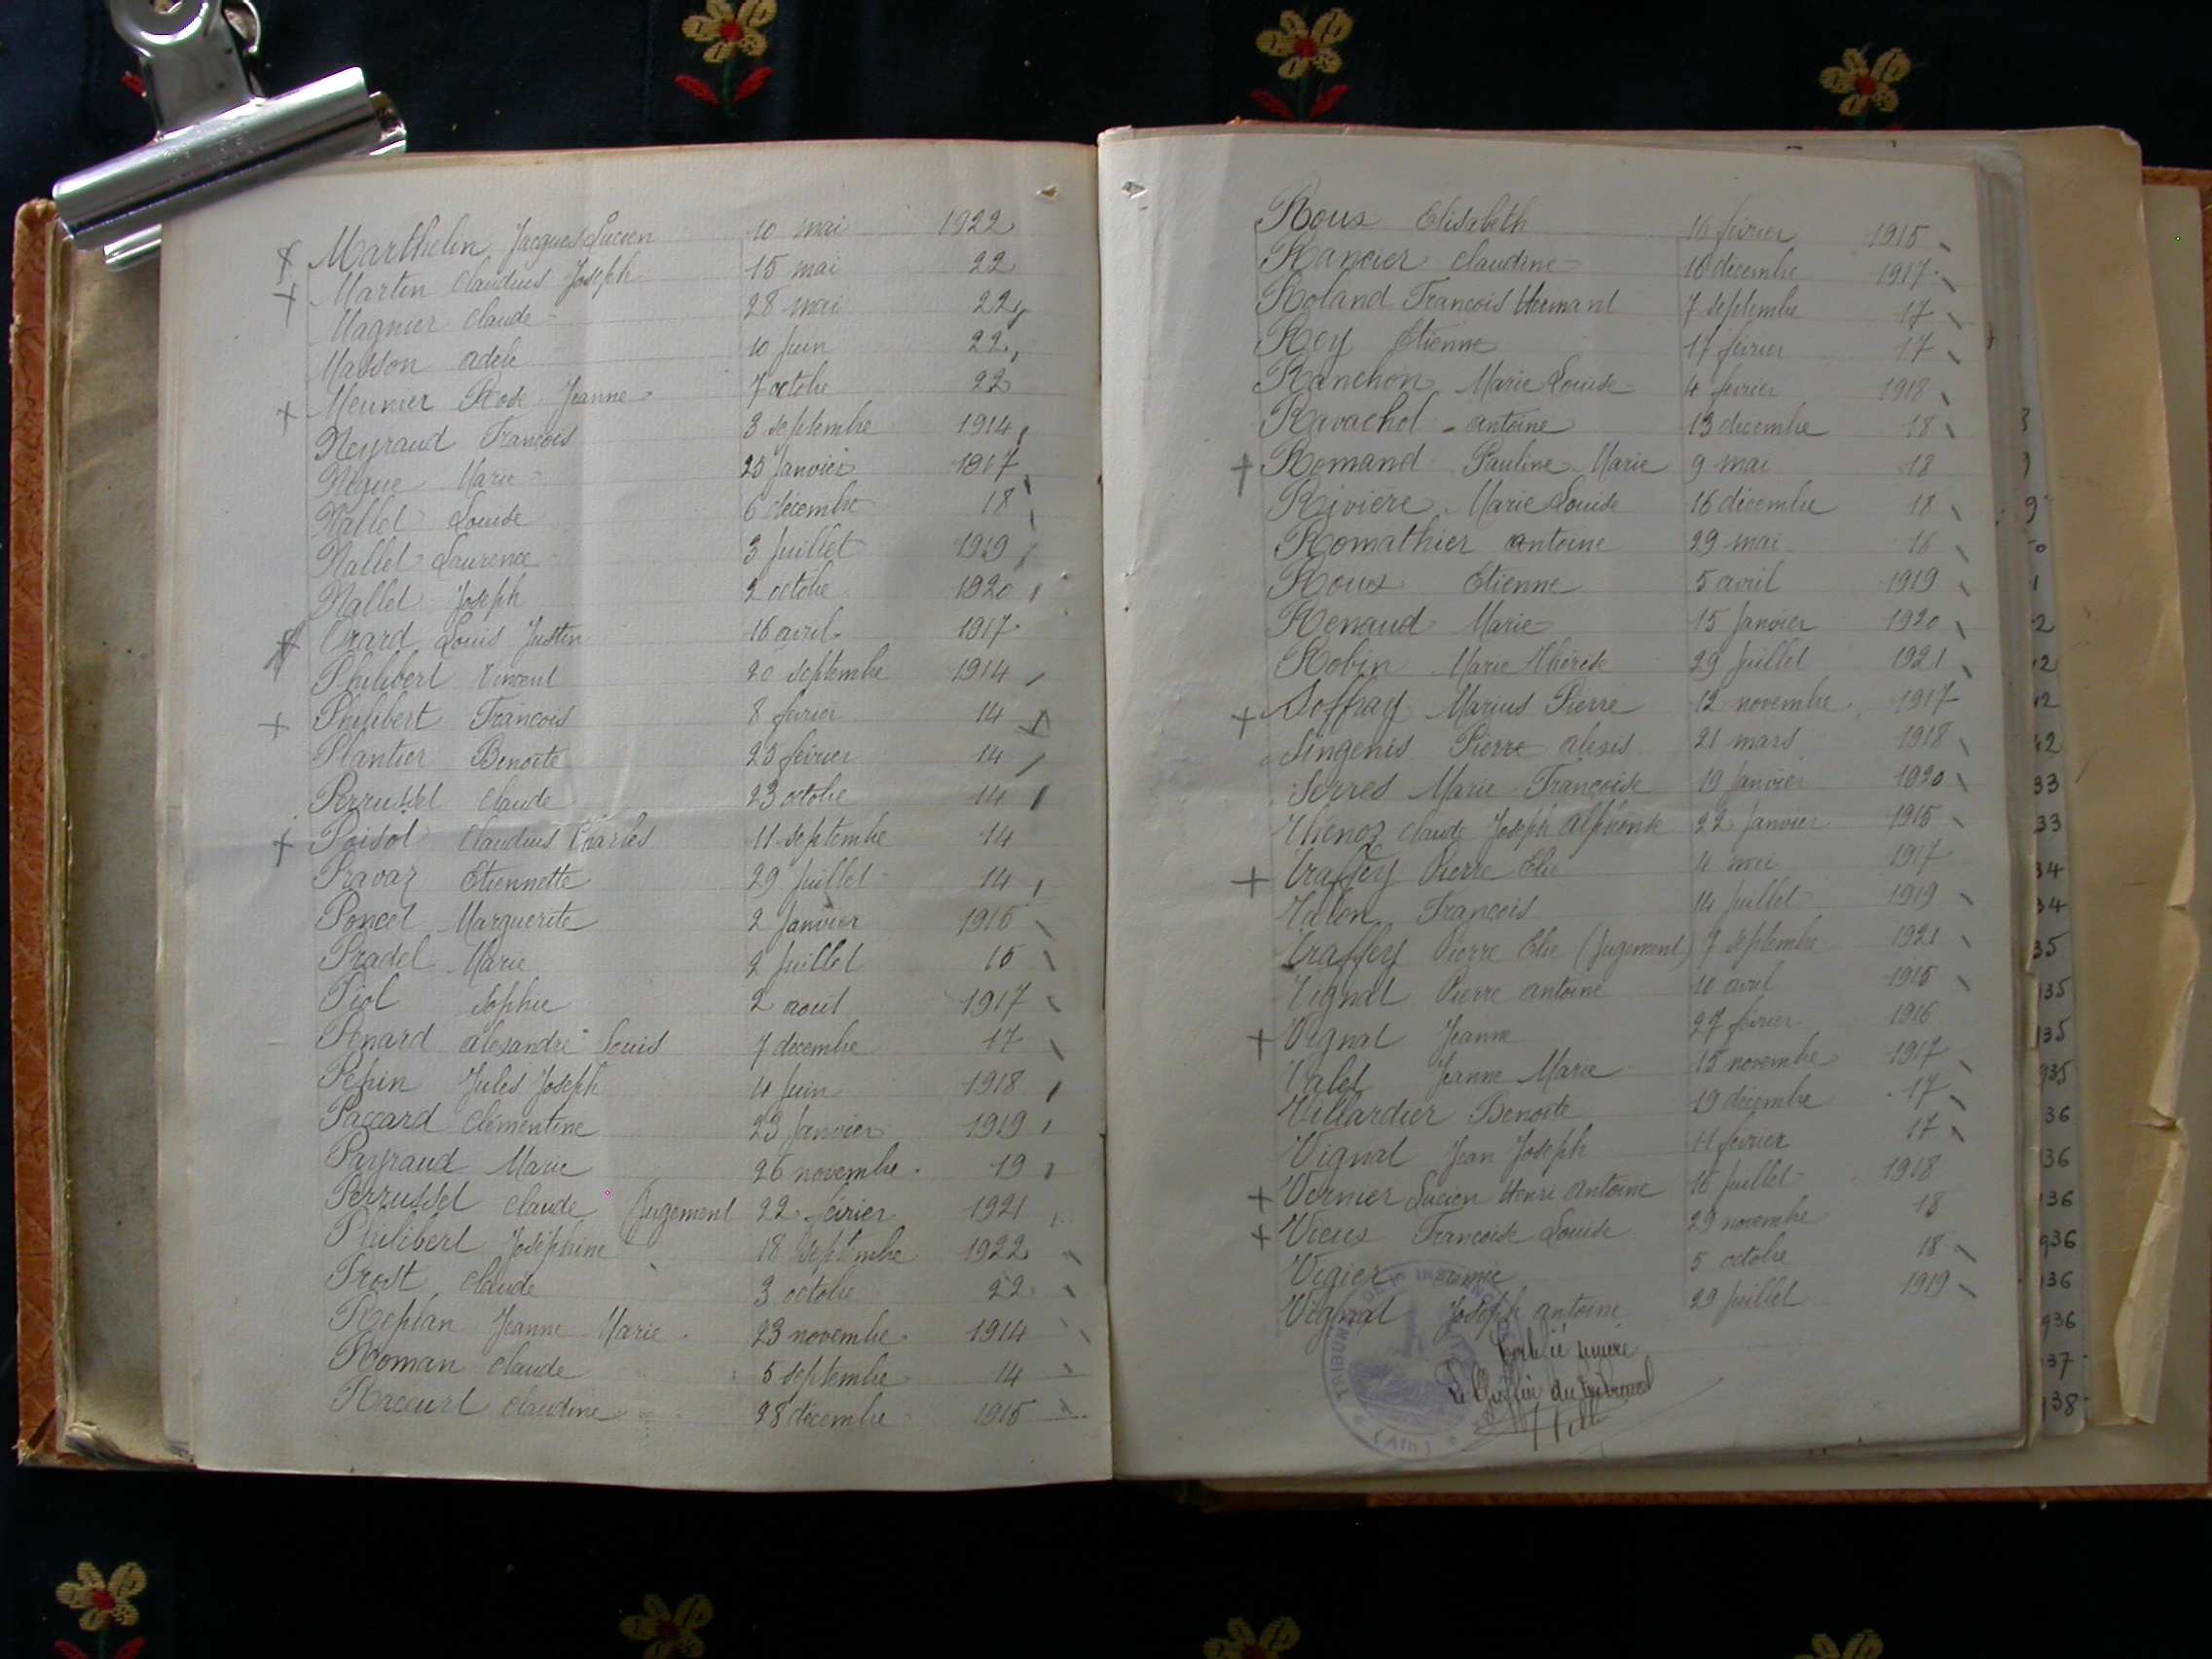 Marthelin Jacques Lucien 10 mai 1922
Martin Claudius Joseph 15 mai 22
Magnier Claude 28 mai 22
Masson adèle 10 Juin 22
Meunier Rose Jeanne 7 octobre 22
Neyraud François 3 septembre 1914
Nique Marie 25 Janvier 1917
Nallet Louise 6 décembre 18
Nallet Laurence 3 Juillet 1919
Nallet Joseph 2 octobre 1920
Orard Louis Justin 16 avril 1917
Philibert Vincent 20 septembre 1914
Philibert François 8 février 14
Plantier Benoite 25 février 14
Perrussel Claude 23 octobre 14
Poisot Claudius Charles 11 septembre 14
Pravaz Etiennette 29 Juillet 14
Poncet Marguerite 2 Janvier 1915
Pradel Marie 2 Juillet 15
Piol Sophie 2 aout 1917
Penard alexandre Louis 7 décembre 17
Pepin Jules Joseph 4 Juin 1918
Paccard Clémentine 23 Janvier 1919
Payraud Marie 26 novembre 19
Perrussel Claude Jugement 22 février 1921
Philibert Joséphine 18 septembre 1922
Prost Claude 3 octobre 22
Replan Jeanne Marie 23 novembre 1914
Roman Claude 5 septembre 14
Raccurt Claudine 28 décembre 1915
Roux Elisabeth 16 février 1915
Rancier Claudine 16 décembre 1917
Roland François 7 septembre 17
Rey Etienne 17 février 17
Ranchon Marie Louise 4 février 1918
Ravachol antoine 13 décembre 18
Romand Pauline Marie 9 mai 18
Rivière Marie Louise 16 décembre 18
Romathier antoine 29 mai 18
Roux Etienne 5 avril 1919
Renaud Marie 15 Janvier 1920
Robin Marie Thérèse 29 Juillet 1921
Soffray Marius Pierre 12 novembre 1917
Singenis Pierre alexis 21 mars 1918
Serres Marie Françoise 19 Janvier 1920
Thenoz Claude Joseph Alphonse 22 Janvier 1915
Traffey Pierre Elie 4 mai 1917
Talon François 14 Juillet 1919
Traffey Pierre Elie (Jugement) 7 septembre 1921
Vignat Pierre antoine 10 avril 1915
Vignat Jeanne 27 février 1916
Valet Jeanne Marie 15 novembre 1917
Villardier Benoite 19 décembre 17
Vignat Jean Joseph 11 février 17
Vernier Lucien Henri Antoine 16 Juillet 1918
Vieux Françoise Louise 29 novembre 18
Vigier 5 octobre 18
Vignat Joseph antoine 29 Juillet 1919
Le Greffier du tribunal
TRIBUNAL DE
(AIN)
33
33
34
34
35
135
135
935
36
36
136
936
136
936
137
138